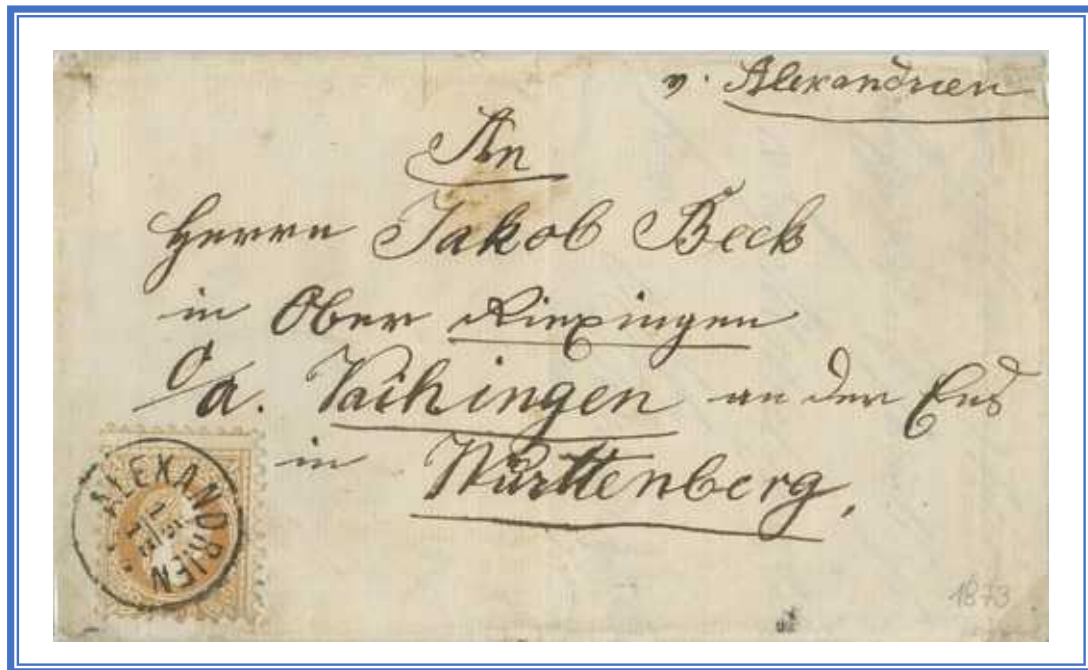 v. Alexandrien
An
Herrn Jakob Beck
in Ober Riexingen
O/a. Vaihingen an der Enz
in Württenberg,
ALEXANDRIEN
1873